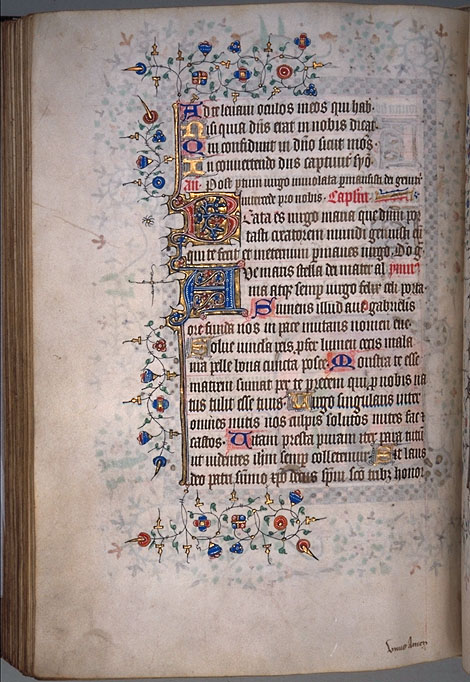 Ad te levavi oculos meos qui hab.
Nisi quia dns erat in nobis dicat.
Qui confidunt in dno sicut mos.
In convertendo dns captivit syo.
an. Post ptum virgo inviolata pmansisti dei genitr
intercede pro nobis. Caplm
Beata es virgo maria que dnm por
tasti creatorem mundi genuisti q
qui te fecit et in eternum pmanes virgo. Do g
Ave maris stella dei mater al ymn
ma atqe semp virgo felix celi porta.
Sumens illud ave gabrielis
ore funda nos in pace mutans nomen eve
Solve vincla reis pfer lumen cecis mala
nra pelle bona cuncta posce. Monstra te esse
matrem sumat per te precem qui p nobis na
tus tulit esse tuus. Virgo singularis inter
omnes mitis nos culpis solutos mites fac et
castos. Vitam presta puram iter para tutu
ut videntes ihm semp colletemur. Sit laus
deo patri sumo xpo decus spui sco tribz honor